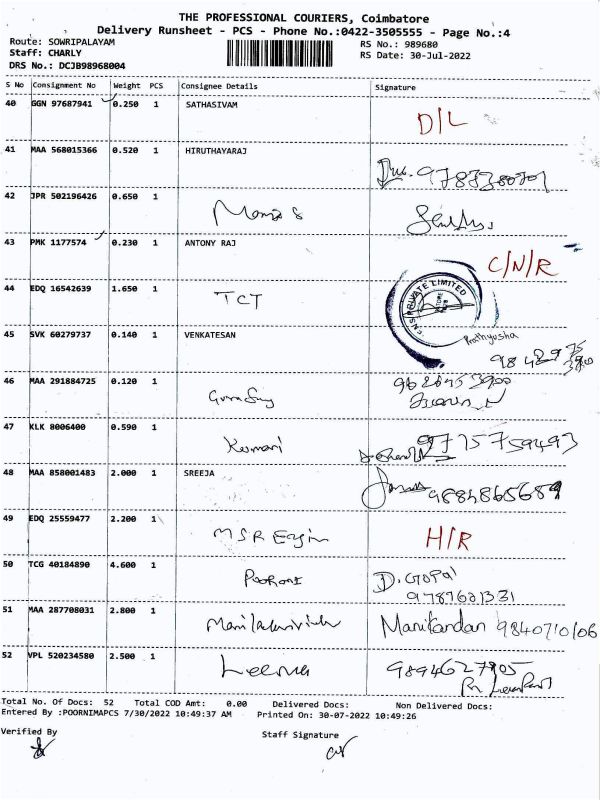 THE PROFESSIONAL COURIERS, Coimbatore
Delivery Runsheet - PCS - Phone No.:0422-3505555 - Page No.:4
Route: SOWRIPALAYAM RS No.: 989680
Staff: CHARLY RS Date: 30-Jul-2022
DRS No.: DCJB98968004
S No Consignment No Weight PCS Consignee Details Signature
40 GGN 97687941 0.250 1 SATHASIVAM D/L
41 MAA 568015366 0.520 1 HIRUTHAYARAJ
42 JPR 502196426 0.650 1
43 PMK 1177574 0.230 1 ANTONY RAJ C/N/R
44 EDQ 16542639 1.650 1 TCT
PRIVATE LIMITED
Prathyusha
45 SVK 60279737 0.140 1 VENKATESAN
46 MAA 291884725 0.120 1
47 KLK 8006400 0.590 1 Kumari 9775759493
48 MAA 858001483 2.000 1 SREEJA 9884865689
49 EDQ 25559477 2.200 1 MSR H/R
50 TCG 40184890 4.600 1 D. GOPAl
9787601331
51 MAA 287708031 2.800 1 Manikandan 9840710106
52 VPL 520234580 2.500 1 Leema 9894627905
Total No. Of Docs: 52 Total COD Amt: 0.00 Delivered Docs: Non Delivered Docs:
Entered By :POORNIMAPCS 7/30/2022 10:49:37 AM Printed On: 30-07-2022 10:49:26
Verified By Staff Signature